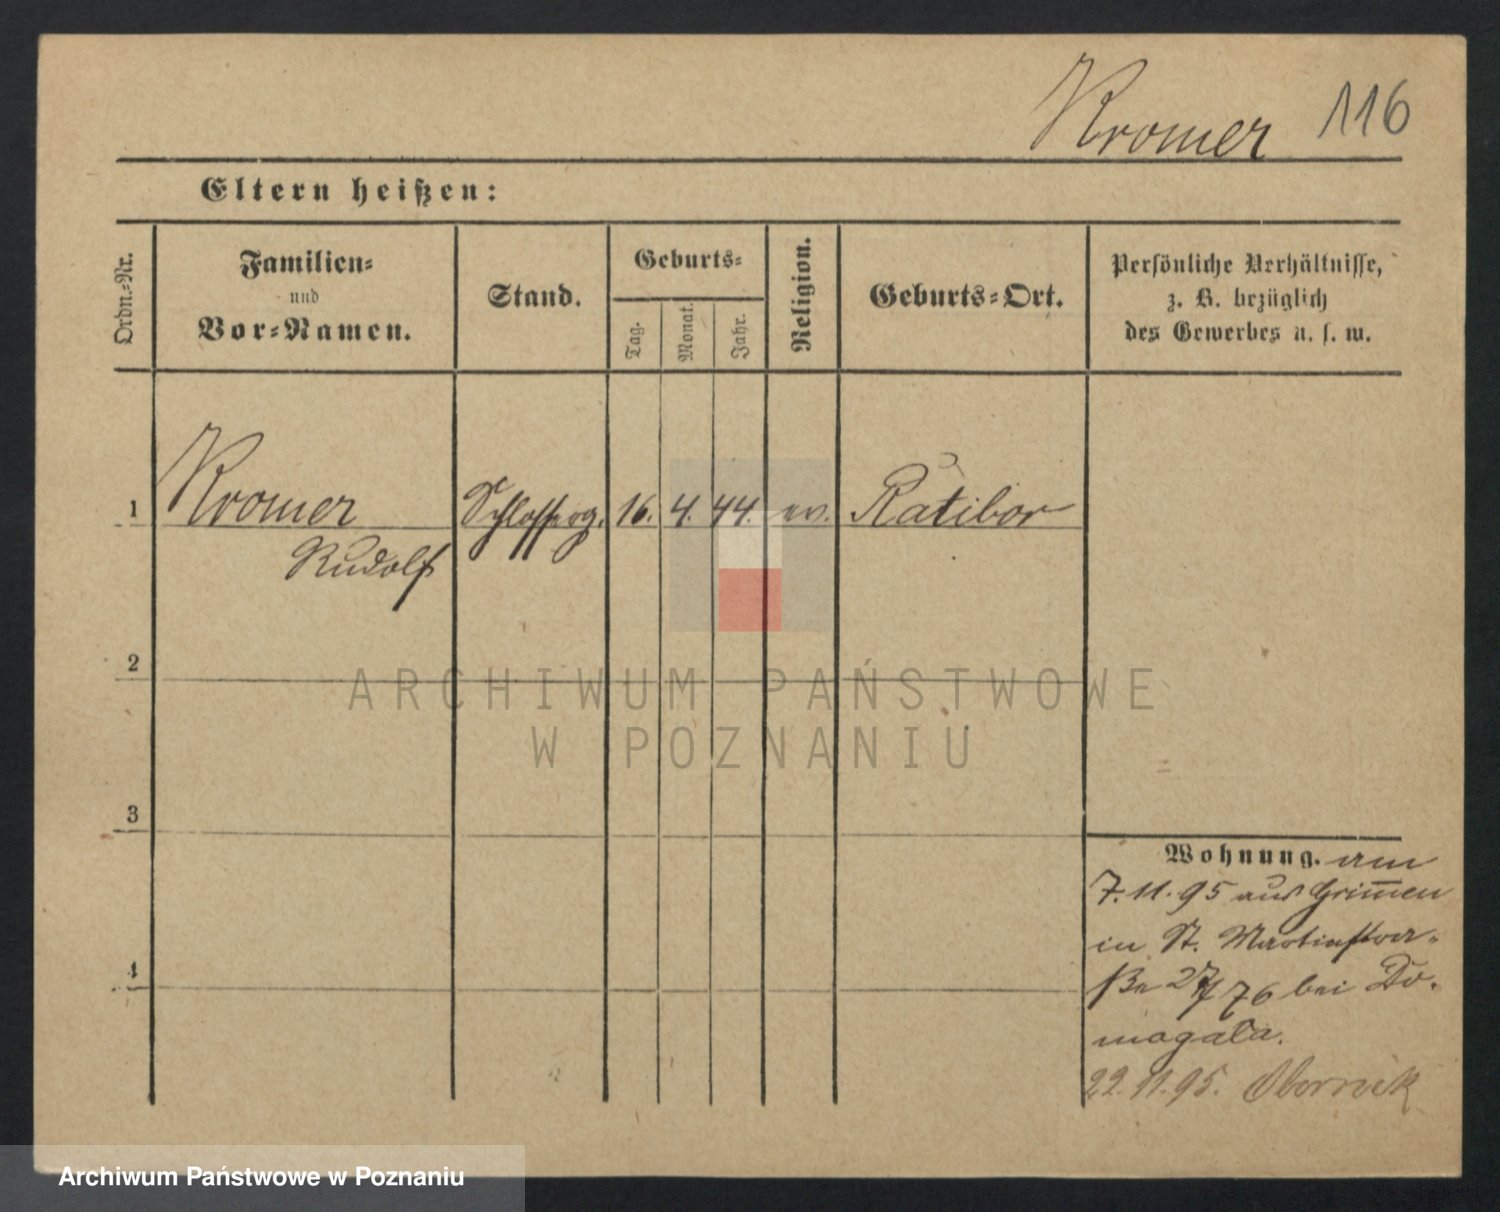 Kromer 116
Eltern heißen:
Ordn.-Nr.
Familien-
und
Vor-Namen.
Stand.
Geburts-
Tag.
Monat.
Jahr.
Religion.
Geburts-Ort.
Persönliche Verhältnisse,
z. B. bezüglich
des Gewerbes u. s. w.
1 Kromer Schlosserg. 16. 4. 44. ev. Ratibor
Rudolf
2
3
4
Wohnung. am
7.11.95 aus Grimen
in St. Martinstra-
ße 76 bei Do-
magala.
22.11.95. Obornik
ARCHIWUM PAŃSTWOWE
W POZNANIU
Archiwum Państwowe w Poznaniu